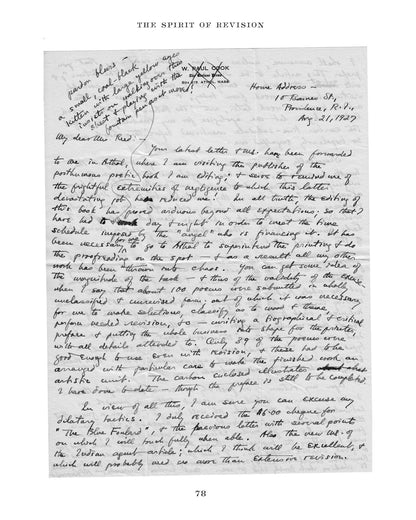 THE SPIRIT OF REVISION
W. PAUL COOK
pardon blurs —
a small, coal-black
kitten with large yellow eyes
insists on walking over this
sheet & playing with the
fountain pen
Home Address —
10 Barnes St.,
Providence, R.I.,
Aug. 21, 1927
My dear Mr. Reed:—
Your latest letter & MS. have been forwarded
to me in Athol, where I am visiting the publisher of the
posthumous poetic book I am editing; & serve to remind me of
the frightful extremities of negligence to which this latter
devastating job has reduced me! In all truth, the editing of
this book has proved arduous beyond all expectations; so that I
have had to work day & night in order to meet the time
schedule imposed by the "angel" who is financing it. It has
been necessary for me to go to Athol to superintend the printing & do
the proofreading on the spot — & as a result all my other
work has been thrown into chaos. You can get some idea of
the magnitude of the task — & thus of the validity of the excuse
when I say that about 100 poems were submitted in wholly
unclassified & unrevised form, out of which it was necessary
for me to make selections, classify as to mood & theme,
perform needed revision, &c — writing a Biographical & critical
preface & putting the whole business into shape for the printer,
with all details attended to. Only 29 of the poems were
good enough to use even with revision, & these had to be
arranged with particular care to make the finished book an
artistic unit. The carbon enclosed illustrates what
I have done to date — though the preface is still to be completed.
In view of all this, I am sure you can excuse my
dilatory tactics. I duly received the cheque for
"The Blue Foulard", & the previous letter with several points
on which I will touch fully when able. Also the new MS. of
the Indian agent article; which I think will be excellent, &
which will probably need no more than extensive revision.
78